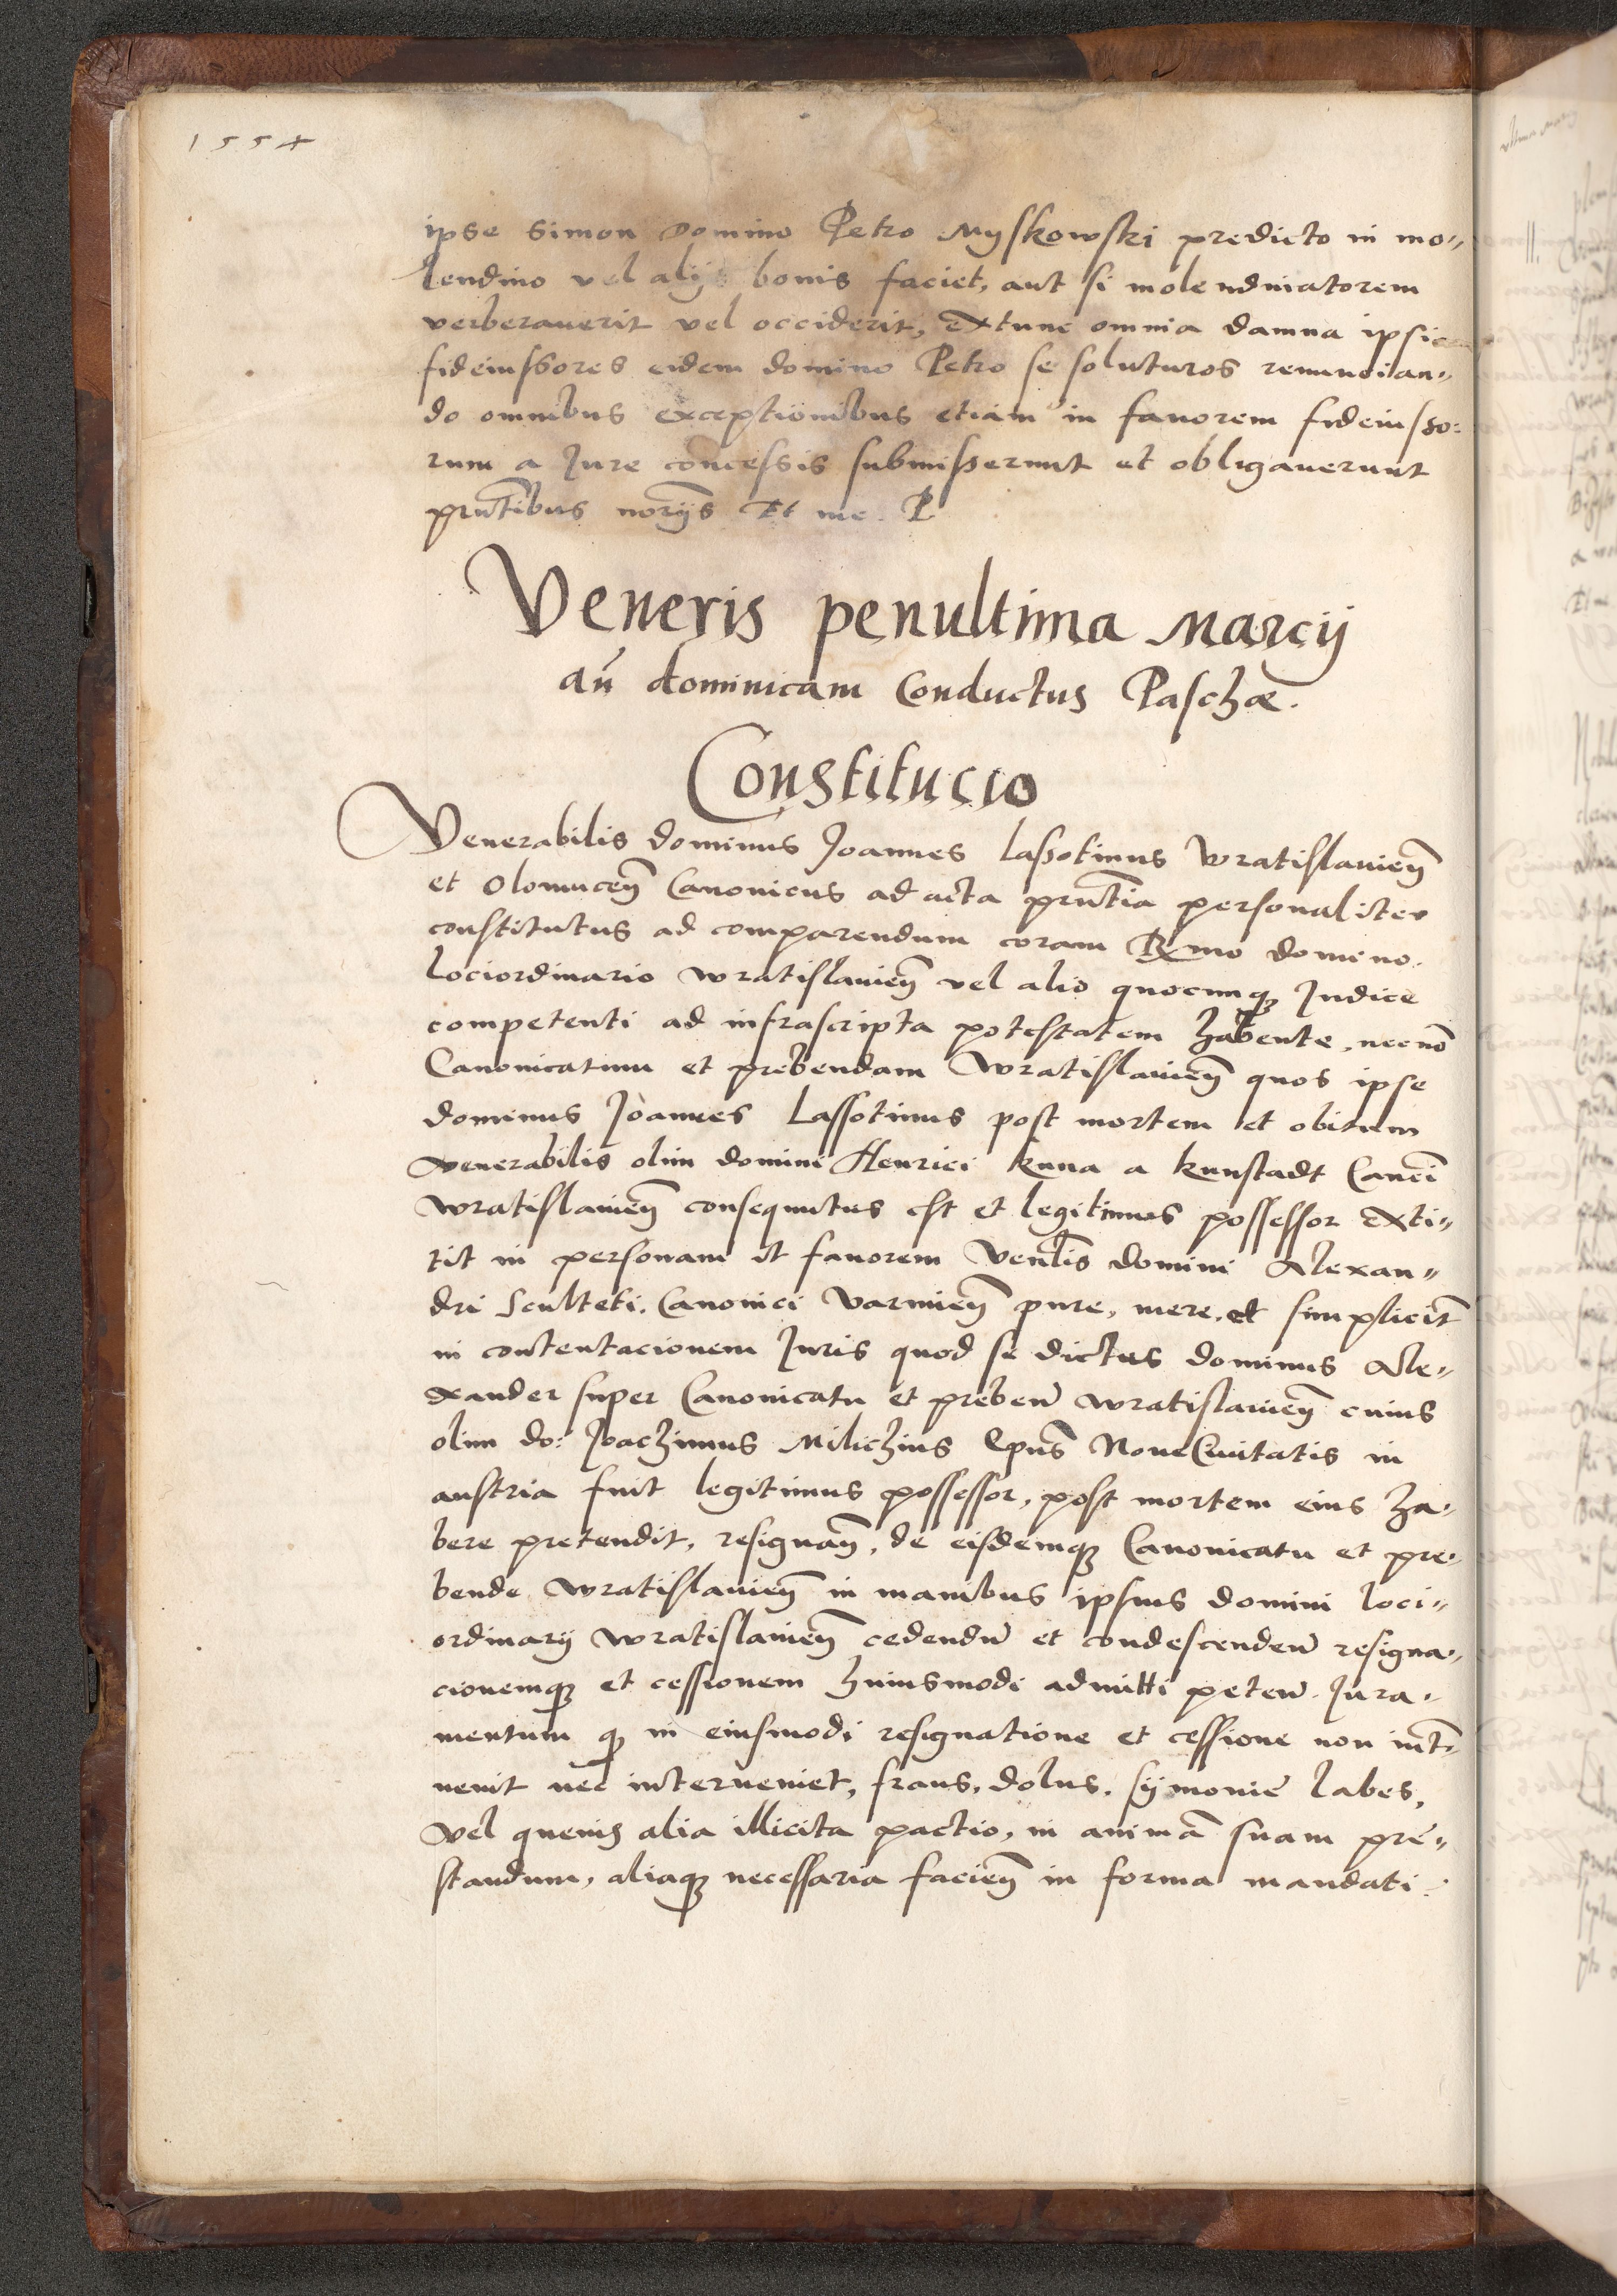 1554
ipse Simon Domino Petro Myskowski predicto in mo„
lendino vel alijs bonis faciet, aut si molendinatorem
verberauerit vel occiderit, Extunc omnia damna ipsi
fideiussores eidem domino Petro se soluturos renuncian„
do omnibus exceptionibus etiam in fauorem fideiusso:
rum a Jure concessis submisserunt et obligauerunt
prñtibus norijs Et me. P
Veneris penultima Marcij
añ dominicam Conductus Paschæ.
Constitucio
Venerabilis dominus Joannes Lassotinus Wratislauieñ
et Olomuceñ Canonicus ad acta prñtia personaliter
constitutus ad comparendum coram Rmo domino
Lociordinario Wratislauieñ vel alio quocunqȝ Judice
competenti ad infrascripta potestatem habente, necnõ
Canonicatum et prebendam Wratislauieñ quos ipse
dominus Joannes Lassotinus post mortem et obitum
venerabilis olim domini Henrici kuna a kunstadt Canci
Wratislauieñ consequutus est et legitimus possessor exti„
tit in personam et fauorem Venlis domini Alexan„
dri Sculteti. Canonici Varmieñ pure, mere, et simplicit̃
in contentacionem Juris quod se dictus dominus Ale„
xander super Canonicatu et prebeñ Wratislauieñ cuius
olim do: Joachimus Milichius Epus Noue Ciuitatis in
austria fuit legitimus possessor, post mortem eius ha„
bere pretendit, resignañ, de eisdemqȝ Canonicatu et pre„
bende Wratislauieñ in manibus ipsius domini loci„
ordinarij Wratislauieñ cedendũ et condescendeñ resigna„
cionemqȝ et cessionem huiusmodi admitti peteñ. Jura„
mentum qȝ in eiusmodi resignatione et cessione non int̃„
venit nec interueniet, fraus, dolus, symonie labes,
vel queuis alia illicita pactio, in animã suam pre„
standum, aliaqȝ necessaria facieñ in forma mandati.